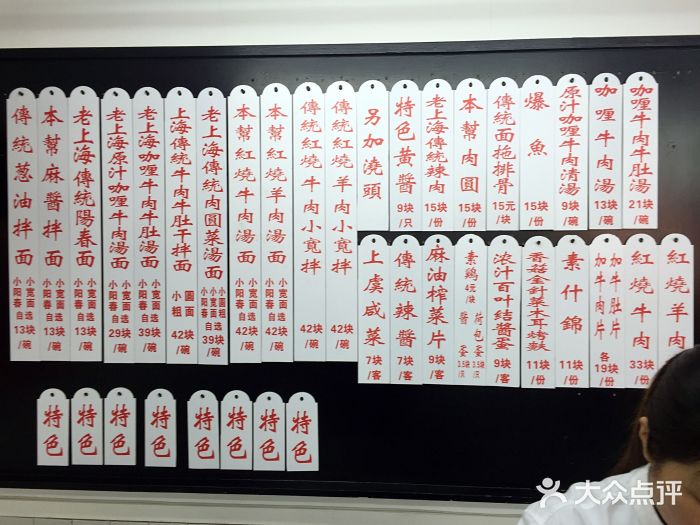 傳統蔥油拌面 小宽面 小阳春 自选 13块/碗
本幫麻醬拌面 小宽面 小阳春 自选 13块/碗
老上海傳統陽春面 小宽面 小阳春 自选 13块/碗
老上海原汁咖喱牛肉湯面 小宽面 小阳春 自选 29块/碗
老上海咖喱牛肉牛肚湯面 小宽面 小阳春 自选 39块/碗
上海傳統牛肉牛肚干拌面 圆面 小粗 42块/碗
老上海傳統肉圓菜湯面 小圆粗 小宽面 小阳春 自选 39块/碗
本幫紅燒牛肉湯面 42块/碗
本幫紅燒羊肉湯面 42块/碗
傳統紅燒牛肉小寬拌 42块/碗
傳統紅燒羊肉小寬拌 42块/碗
另加澆頭
特色黃醬 9块/只
老上海傳統辣肉 15块/份
本幫肉圓 15块/份
傳統面拖排骨 15元/块
爆魚 15块/份
原汁咖喱牛肉清湯 9块/碗
咖喱牛肉湯 13块/碗
咖喱牛肉牛肚湯 21块/碗
上虞咸菜 7块/客
傳統辣醬 7块/客
麻油榨菜片 9块/客
素鷄 4元/块 醬蛋 3.5块/只 荷包蛋 3.5块/只
浓汁百叶結醬蛋 9块/客
香菇金針菜木耳烤麩 11块/份
素什錦 11块/份
加牛肚片 加牛肉片 各19块/份
紅燒牛肉 33块/份
紅燒羊肉
特色
特色
特色
特色
特色
特色
特色
特色
大众点评